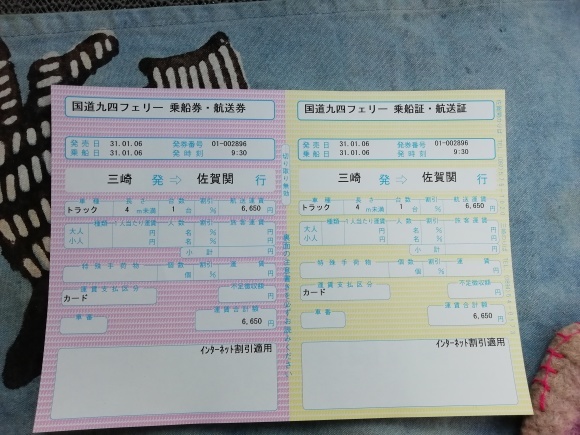 国道九四フェリー 乗船券・航送券
発売日 31.01.06 発券番号 01-002896
乗船日 31.01.06 発時刻 9:30
三崎 発 ⇨ 佐賀関 行
車種 長さ 台数 割引 航送運賃
トラック 4 m未満 1 台 % 6,650 円
種類 一人当たり運賃 人数 割引 旅客運賃
大人 円 名 % 円
小人 円 名 % 円
小計 円
特殊手荷物 個数 割引 運賃
個 % 円
運賃支払区分 不足徴収額
カード 円
車番 運賃合計額
6,650 円
インターネット割引適用
切り取り無効
国道九四フェリー 乗船証・航送証
発売日 31.01.06 発券番号 01-002896
乗船日 31.01.06 発時刻 9:30
三崎 発 ⇨ 佐賀関 行
車種 長さ 台数 割引 航送運賃
トラック 4 m未満 1 台 % 6,650 円
種類 一人当たり運賃 人数 割引 旅客運賃
大人 円 名 % 円
小人 円 名 % 円
小計 円
特殊手荷物 個数 割引 運賃
個 % 円
運賃支払区分 不足徴収額
カード 円
車番 運賃合計額
6,650 円
インターネット割引適用